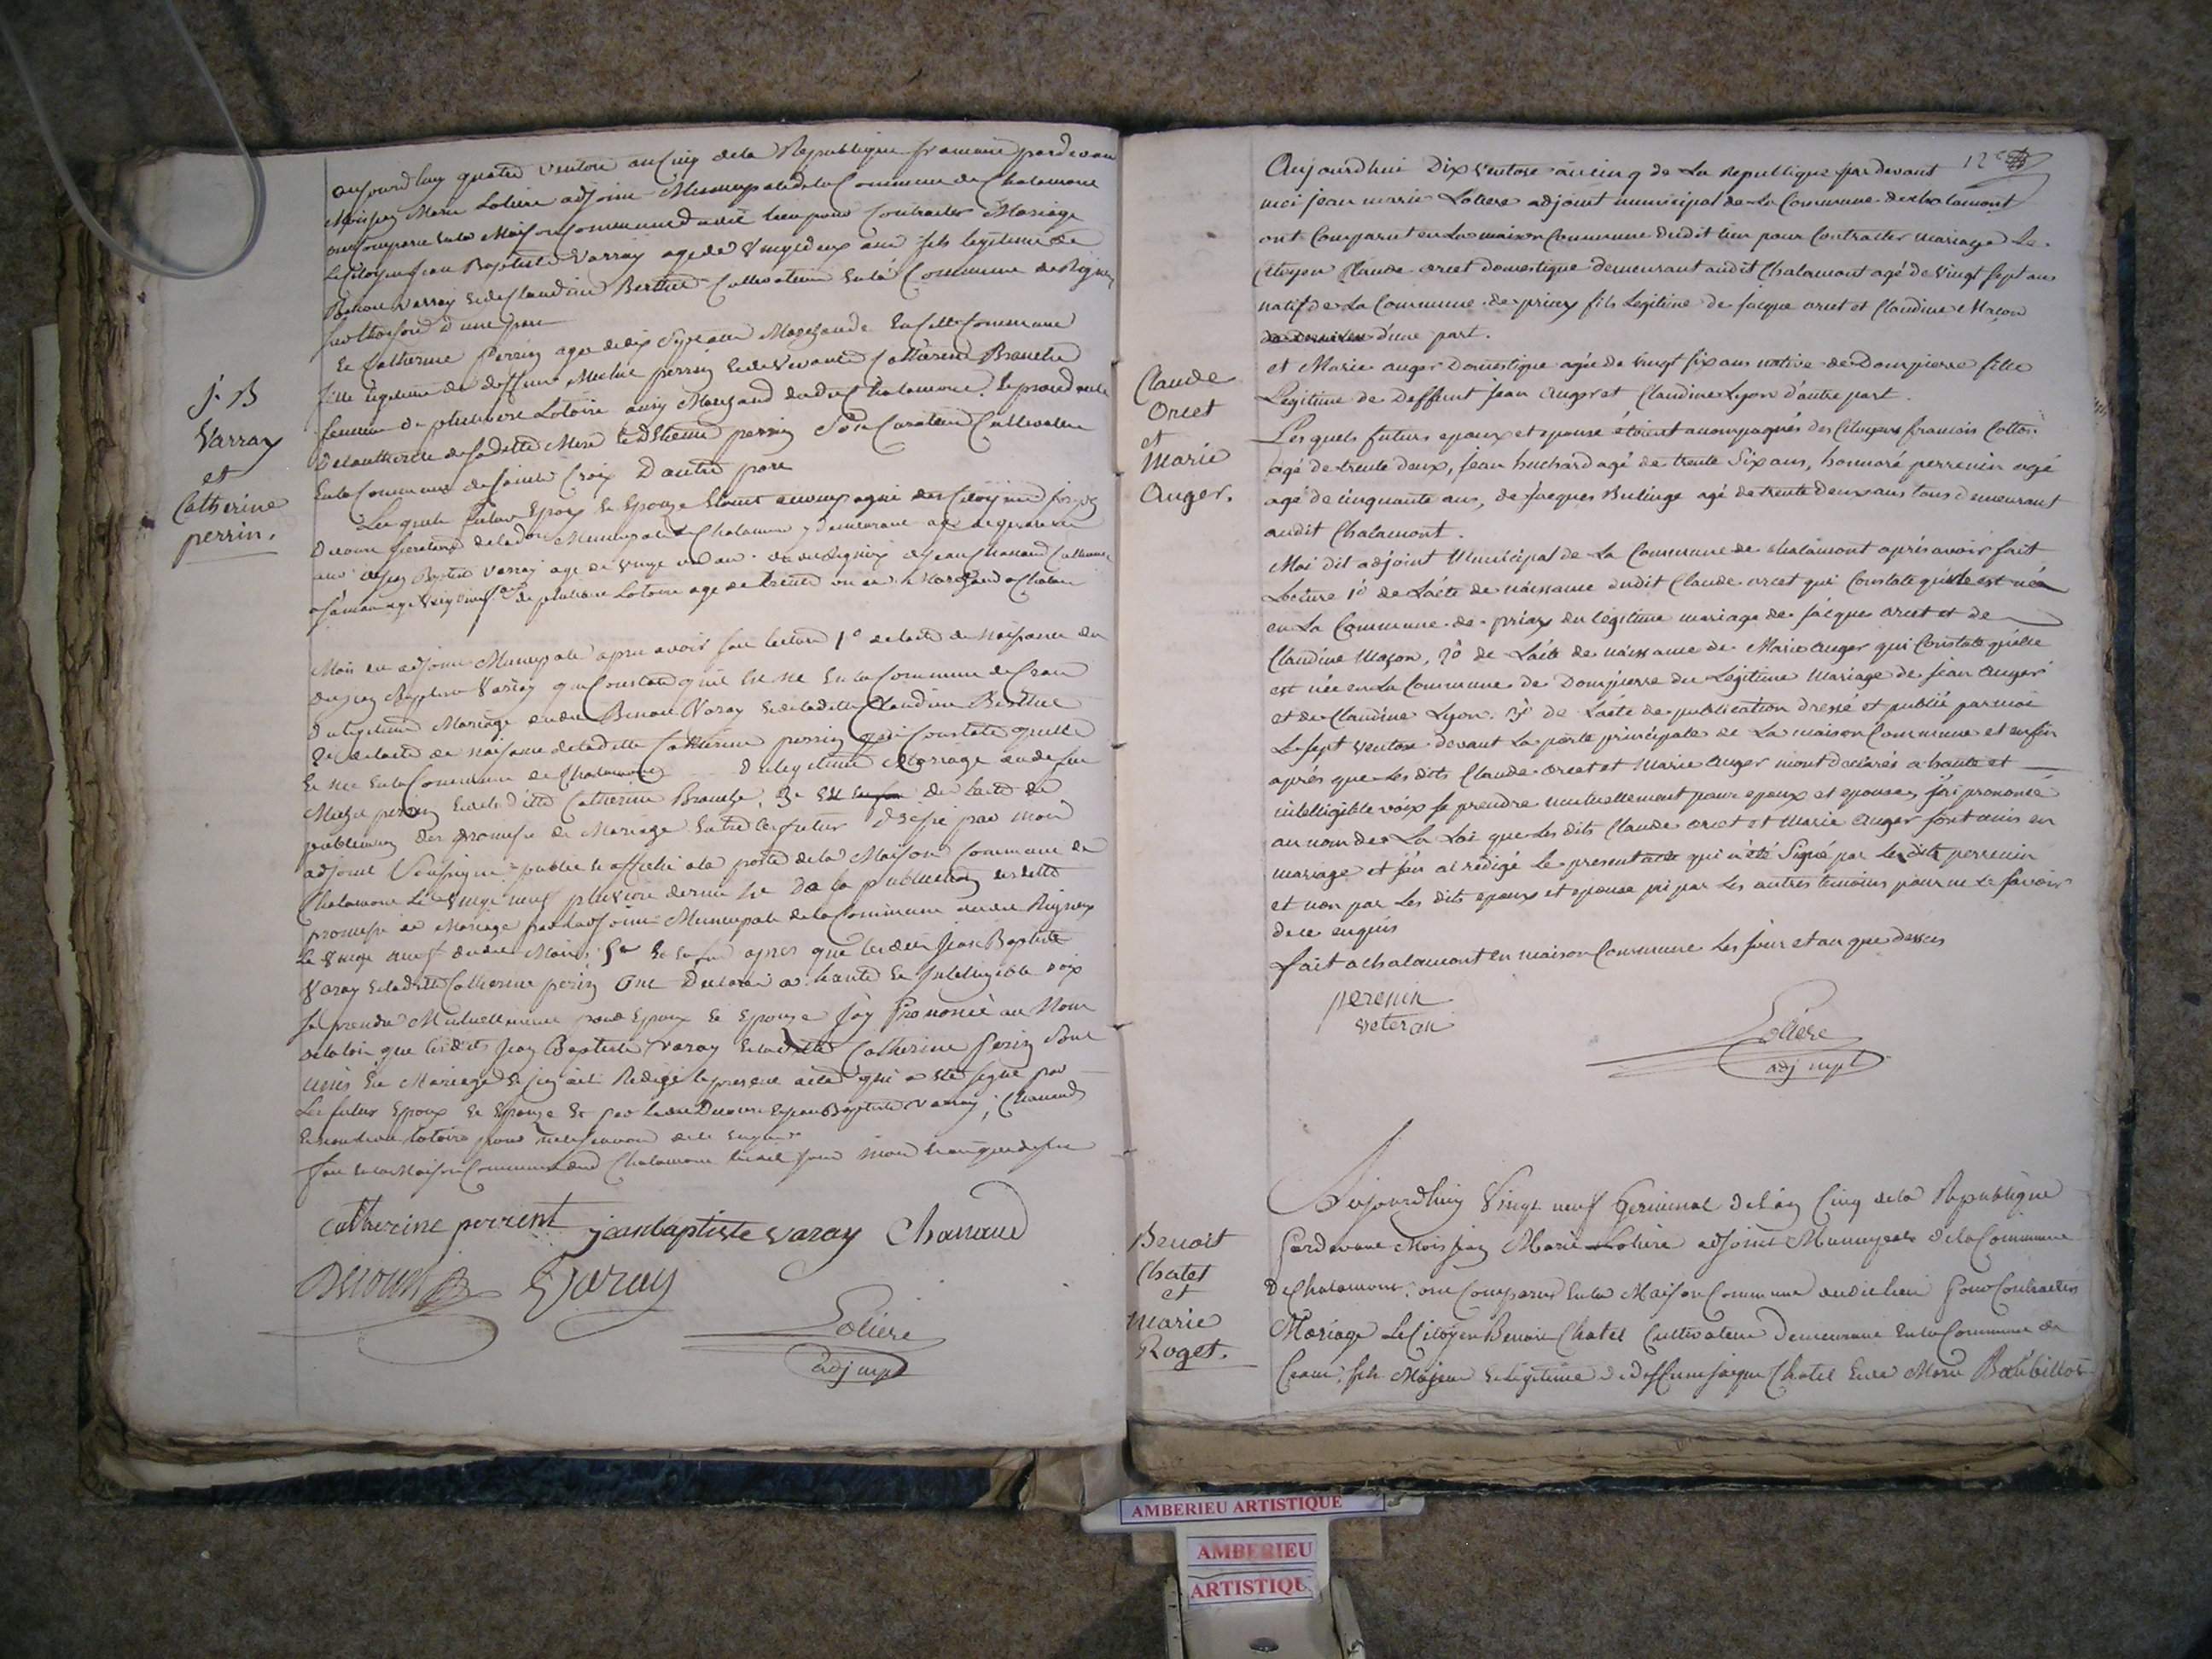 J. B
Varray
et
Catherine
perrin.
aujourdhuy quatre ventose an Cinq dela Republique francaise pardevant
Moi jean Marie Loliere adjoint Municipale dela Commune de Chalamont
ont Comparu en la Maison Commune dudit lieu pour Contracter Mariage
Le Citoyen jean Baptiste Varray age de Vingt deux ans fils legitime de
Benoit Varray et de Claudine Berthet Cultivateur en la Commune de Rignieux
d'une part
Et Catherine perrin agee de dix sept ans Marchande en cette Commune
fille legitime de deffunt Michel perrin et de vivante Catherine Branche
femme de philibert Lotoire aussy Marchand dudit Chalamont
De lauthorite de sadite Mere et d'Etienne perrin Son Curateur Cultivateur
en la Commune de Sainte Croix D'autre part
Les quels futurs Epoux et Epouze Etoient accompagné des Citoyens
secretaire de ladite Municipalite Chalamont y demeurant age de
ans Jean Baptiste Varray age de vingt un ans dudit Rignieux et jean Chanaud Cultivateur
de philibert Lotoire age de trente un an Marchand a Chalamont
Moi dit adjoint Municipale apres avoir fait lecture 1º de lacte de Naissance du
dit jean Baptiste Varray qui Constate qu'il est ne en la Commune de Cran
du legitime Mariage dudit Benoit Varay et de ladite Claudine Berthet
2º de lacte de naissance de ladite Catherine perrin qui Constate quelle
est nee en la Commune de Chalamont du legitime Mariage dudefun
Michel perrin et de ladite Catherine Branche, 3º de lacte de
publication des promesse de Mariage entre les futur dressé par moi
adjoint Soussigné publié et affiché a la porte de la Maison Commune de
Chalamont le vingt neuf pluviose dernier de la publication de ladite
promesse de Mariage par ladjoint Municipale de la Commune dudit Rignieux
le vingt neuf dudit Mois; 5º et enfin apres que lesdits Jean Baptiste
Varay et ladite Catherine perrin ont Declaré a haute et Intelligible voix
se prendre Mutuellement pour Epoux et Epouze jay Prononcé au Nom
dela loi que lesdits jean Baptiste Varay et ladite Catherine perrin sont
unis en Mariage et jay Redigé le present acte qui a eté signé par
les futur Epoux et Epouze et par jean Baptiste Varray, Chanaud
et non ledit Lotoire pour ne le scavoir de ce enquis
fait en la Maison Commune dud Chalamont jour mois et an que dessus
catherine perrent jeanbaptiste varay Chanaud
Varay
Loliere
adj mpl
12e
Claude
Orcet
et
Marie
Auger.
Aujourdhui Dix ventose an cinq de La republique par devant
moi jean marie Loliere adjoint municipal de La Commune de chalamont
ont Comparut en La maison Commune dudit lieu pour Contracter mariage Le
Citoyen Claude orcet domestique demeurant audit Chalamont agé de vingt sept ans
natif de La Commune de priay fils Legitime de jacque orcet et Claudine Maçon
d'une part.
et Marie auger Domestique agée de vingt six ans native de Dompierre fille
Legitime de Deffunt jean Auger et Claudine Lyon d'autre part.
Lesquels futurs epoux et epouse étoient accompagnés des Citoyens francois Cotton
agé de trente deux, jean huchard agé de trente six ans, honnoré perrenin agé
agé de cinquante ans, de jacques Bulinge agé de trente deux ans tous demeurant
audit Chalamont.
Moi dit adjoint Municipal de La Commune de chalamont aprés avoir fait
Lecture 1º de L'acte de naissance dudit Claude orcet qui Constate qu'ile est né
en La Commune de priay du légitime mariage de jacques orcet et de
Claudine Maçon, 2º de L'acte de naissance de Marie Auger qui Constate qu'elle
est née en La Commune de Dompierre du Légitime Mariage de jean Auger
et de Claudine Lyon. 3º de L'acte de publication dressé et publié par moi
Le sept ventose devant La porte principale de La maison Commune et enfin
aprés que les dits Claude orcet et Marie Auger m'ont declarés a haute et
intelligible voix se prendre mutuellement pour epoux et epouse, j'ai prononcé
au nom de La Loi que Les dits Claude orcet et Marie Auger sont unis en
mariage et j'en ai rédigé Le present acte qui a été Signé par Ledit perrenin
et non par Les dits epoux et epouse ni par Les autres temoins pour ne Le savoir
de ce enquis
fait a chalamont en maison Commune Les jour et an que dessus
perenin
veteran
Loliere
adj mpl
Benoit
Chatel
et
Marie
Roget.
Aujourdhuy Vingt neuf Germinal de l'an Cinq dela Republique
Pardevant Moi jean Marie Loliere adjoint Municipale de la Commune
De Chalamont, ont Comparus en la Maison Commune dudit lieu pour Contracter
Mariage Le Citoyen Benoit Chatel Cultivateur demeurant en la Commune de
Cran, fils Majeur et Legitime de deffunt jaque Chatel et de Marie Barbillot